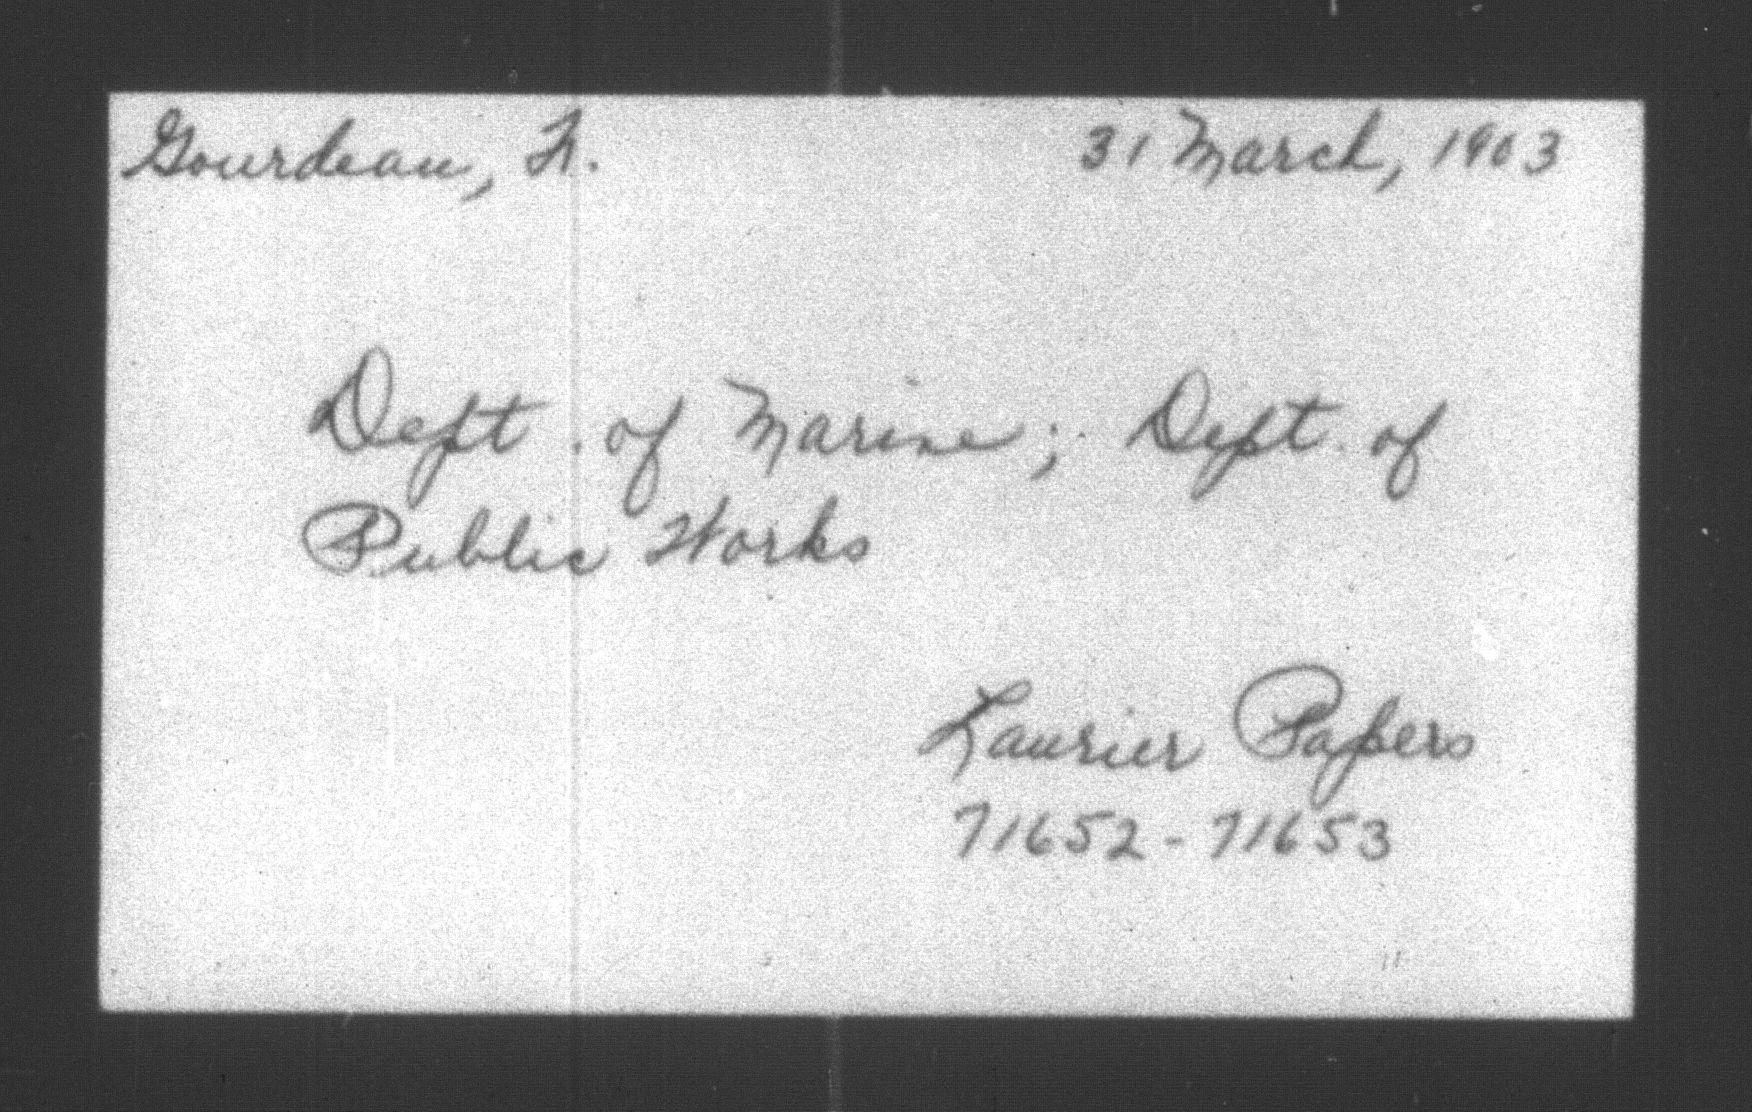 Gourdeau, F. 31 March, 1903
Dept. of Marine; Dept. of
Public Works
Laurier Papers
71652-71653